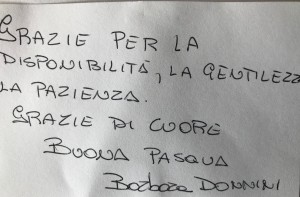 GRAZIE PER LA
DISPONIBILITÀ, LA GENTILEZZ
LA PAZIENZA.
GRAZIE DI CUORE
BUONA PASQUA
Barbara DONNINI